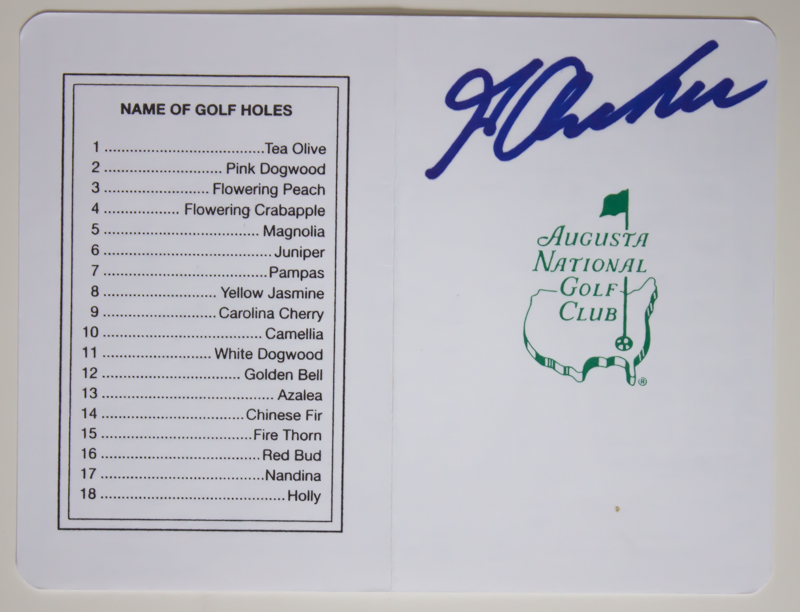 NAME OF GOLF HOLES
1 ........................................Tea Olive
2 ............................. Pink Dogwood
3 .......................... Flowering Peach
4 ................... Flowering Crabapple
5 ....................................... Magnolia
6 ..........................................Juniper
7 .........................................Pampas
8 ............................ Yellow Jasmine
9 ............................Carolina Cherry
10 .........................................Camellia
11 ........................... White Dogwood
12 ................................... Golden Bell
13 ........................................... Azalea
14 ...................................Chinese Fir
15 .....................................Fire Thorn
16 ........................................Red Bud
17 .........................................Nandina
18 ..............................................Holly
AUGUSTA
NATIONAL
GOLF
CLUB
®